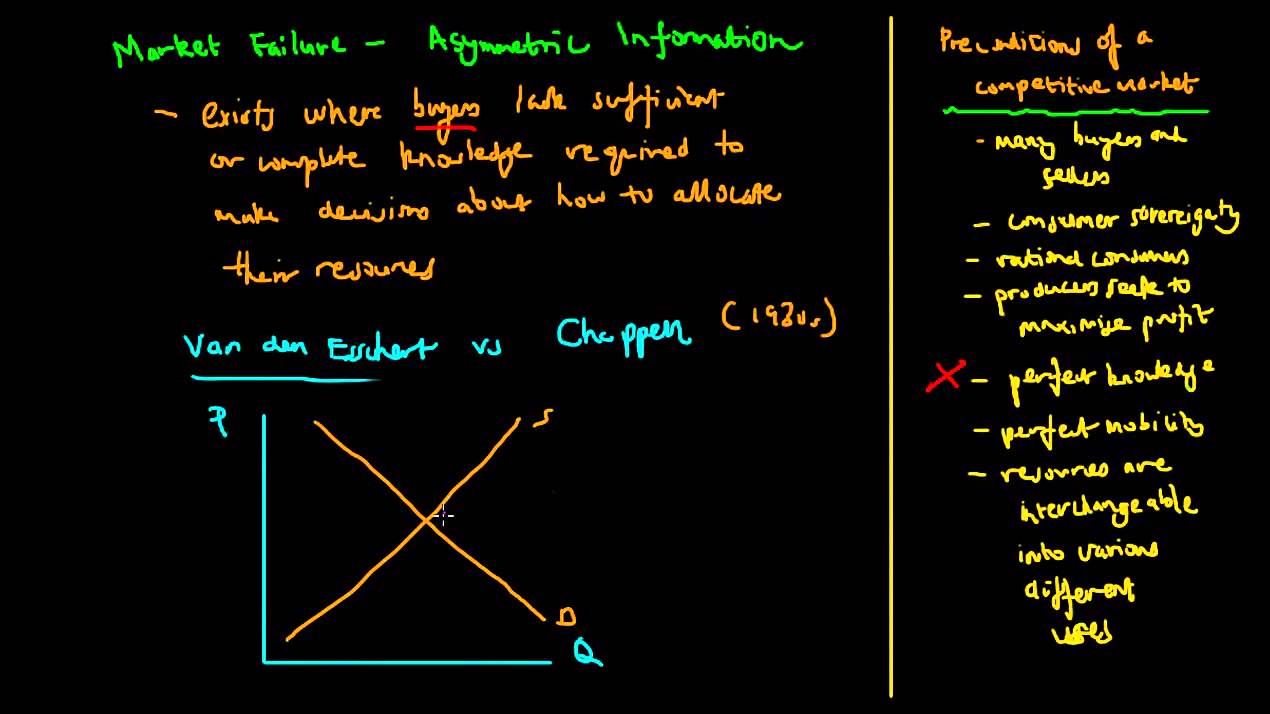 Market Failure - Asymmetric Information
- exists where buyers lack sufficient
or complete knowledge required to
make decisions about how to allocate
their resources
Van den Esschert vs Chappell
P
S
D
Q
Preconditions of a
competitive market
- many buyers and
sellers
- consumer sovereignty
- rational consumers
- producers seek to
maximise profit
- perfect knowledge
- perfect mobility
- resources are
interchangeable
into various
different
uses